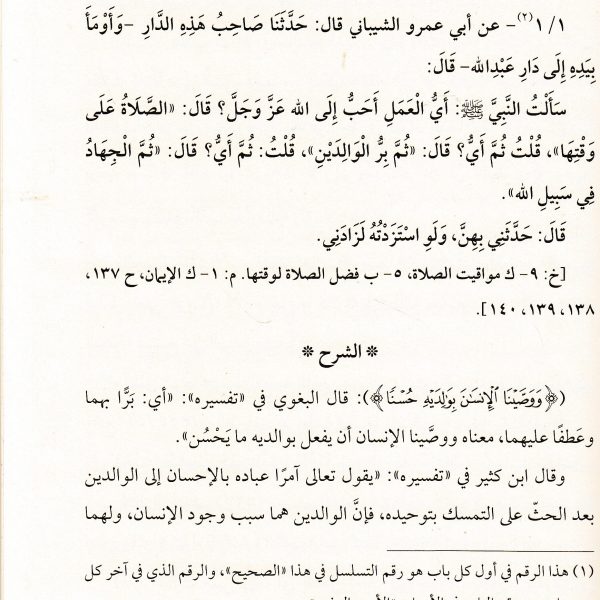 ١/ ١(٢)- عن أبي عمرو الشيباني قال: حَدَّثَنَا صَاحِبُ هَذِهِ الدَّارِ -وَأَوْمَأَ
بِيَدِهِ إِلَى دَارِ عَبْدِالله- قَالَ:
سَأَلْتُ النَّبِيَّ ﷺ: أَيُّ الْعَمَلِ أَحَبُّ إِلَى الله عَزَّ وَجَلَّ؟ قَالَ: «الصَّلَاةُ عَلَى
وَقْتِهَا»، قُلْتُ ثُمَّ أَيُّ؟ قَالَ: «ثُمَّ بِرُّ الْوَالِدَيْنِ»، قُلْتُ: ثُمَّ أَيُّ؟ قَالَ: «ثُمَّ الْجِهَادُ
فِي سَبِيلِ الله».
قَالَ: حَدَّثَنِي بِهِنَّ، وَلَوِ اسْتَزَدْتُهُ لَزَادَنِي.
[خ: ٩- ك مواقيت الصلاة، ٥- ب فضل الصلاة لوقتها. م: ١- ك الإيمان، ح ١٣٧،
١٣٨، ١٣٩، ١٤٠].
* الشرح *
(﴿وَوَصَّيْنَا ٱلْإِنسَٰنَ بِوَٰلِدَيْهِ حُسْنًا﴾): قال البغوي في «تفسيره»: «أي: بَرًّا بهما
وعَطفًا عليهما، معناه ووصَّينا الإنسان أن يفعل بوالديه ما يَحْسُن».
وقال ابن كثير في «تفسيره»: «يقول تعالى آمرًا عباده بالإحسان إلى الوالدين
بعد الحثّ على التمسك بتوحيده، فإنَّ الوالدين هما سبب وجود الإنسان، ولهما
(١) هذا الرقم في أول كل باب هو رقم التسلسل في هذا «الصحيح»، والرقم الذي في آخر كل